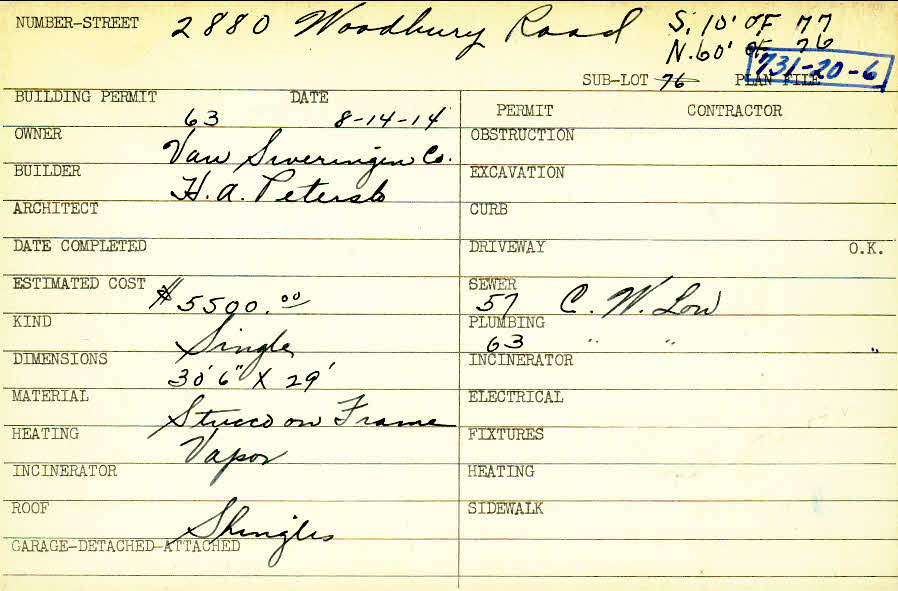 NUMBER-STREET 2880 Woodbury Road S. 10' OF 77
N. 60' of 76
731-20-6
SUB-LOT 76 PLAN FILE
BUILDING PERMIT 63 DATE 8-14-14
PERMIT CONTRACTOR
OWNER Van Sweringen Co.
OBSTRUCTION
BUILDER H. A. Peters
EXCAVATION
ARCHITECT
CURB
DATE COMPLETED
DRIVEWAY O.K.
ESTIMATED COST $5500.00
SEWER 57 C. W. Low
KIND Single
PLUMBING 63 " " "
DIMENSIONS 30'6" X 29'
INCINERATOR
MATERIAL Stucco on Frame
ELECTRICAL
HEATING Vapor
FIXTURES
INCINERATOR
HEATING
ROOF Shingles
SIDEWALK
GARAGE-DETACHED-ATTACHED